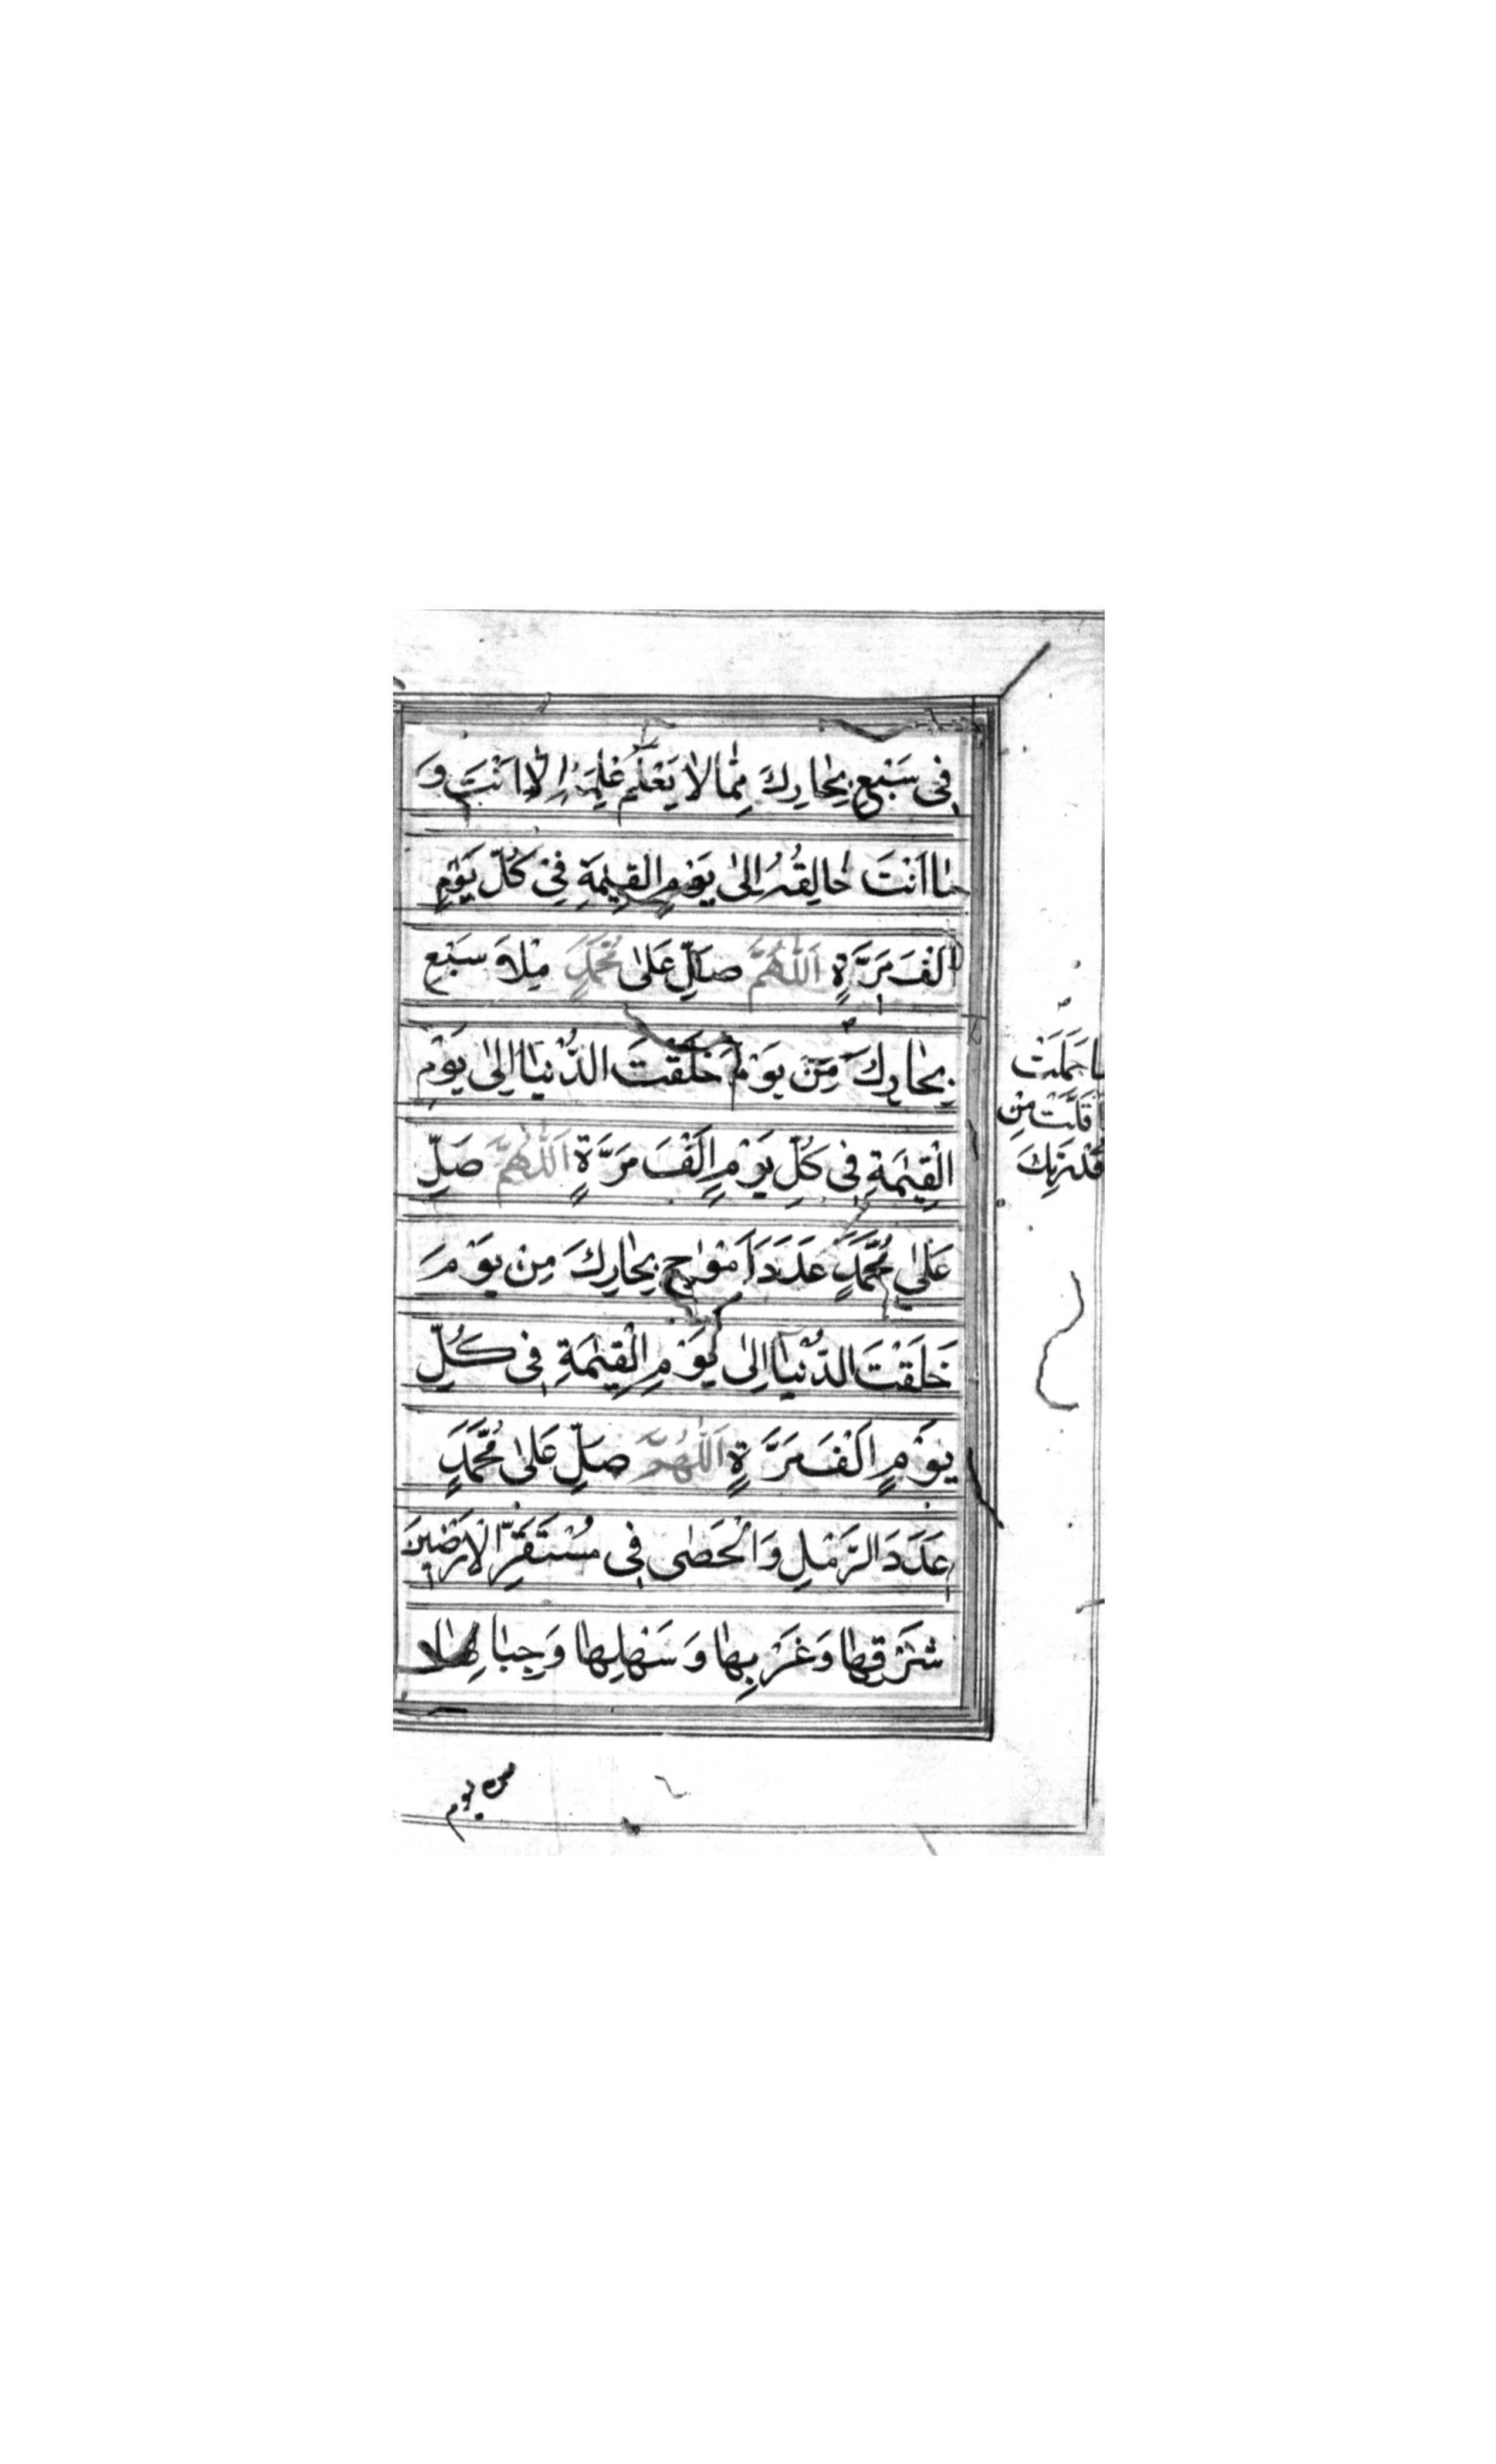 فِي سَبْعِ بِحَارِكَ مِمَّا لَا يَعْلَمُ عِلْمَهُ اِلَّا اَنْتَ وَ
مَا اَنْتَ خَالِقُهُ اِلٰى يَوْمِ الْقِيٰمَةِ فِيْ كُلِّ يَوْمٍ
اَلْفَ مَرَّةٍ اَللّٰهُمَّ صَلِّ عَلٰى مُحَمَّدٍ مِلْأَ سَبْعِ
بِحَارِكَ مِنْ يَوْمَ خَلَقْتَ الدُّنْيَا اِلٰى يَوْمِ
الْقِيٰمَةِ فِي كُلِّ يَوْمٍ اَلْفَ مَرَّةٍ اَللّٰهُمَّ صَلِّ
عَلٰى مُحَمَّدٍ عَدَدَ اَمْوَاجِ بِحَارِكَ مِنْ يَوْمَ
خَلَقْتَ الدُّنْيَا اِلٰى يَوْمِ الْقِيٰمَةِ فِي كُلِّ
يَوْمٍ اَلْفَ مَرَّةٍ اَللّٰهُمَّ صَلِّ عَلٰى مُحَمَّدٍ
عَدَدَ الرَّمْلِ وَالْحَصٰى فِي مُسْتَقَرِّ الْاَرَضِيْنَ
شَرْقِهَا وَغَرْبِهَا وَسَهْلِهَا وَجِبَالِهَا
حَمَلَتْ
قَلَّتْ مِنْ
قُدْرَتِكَ
من يوم